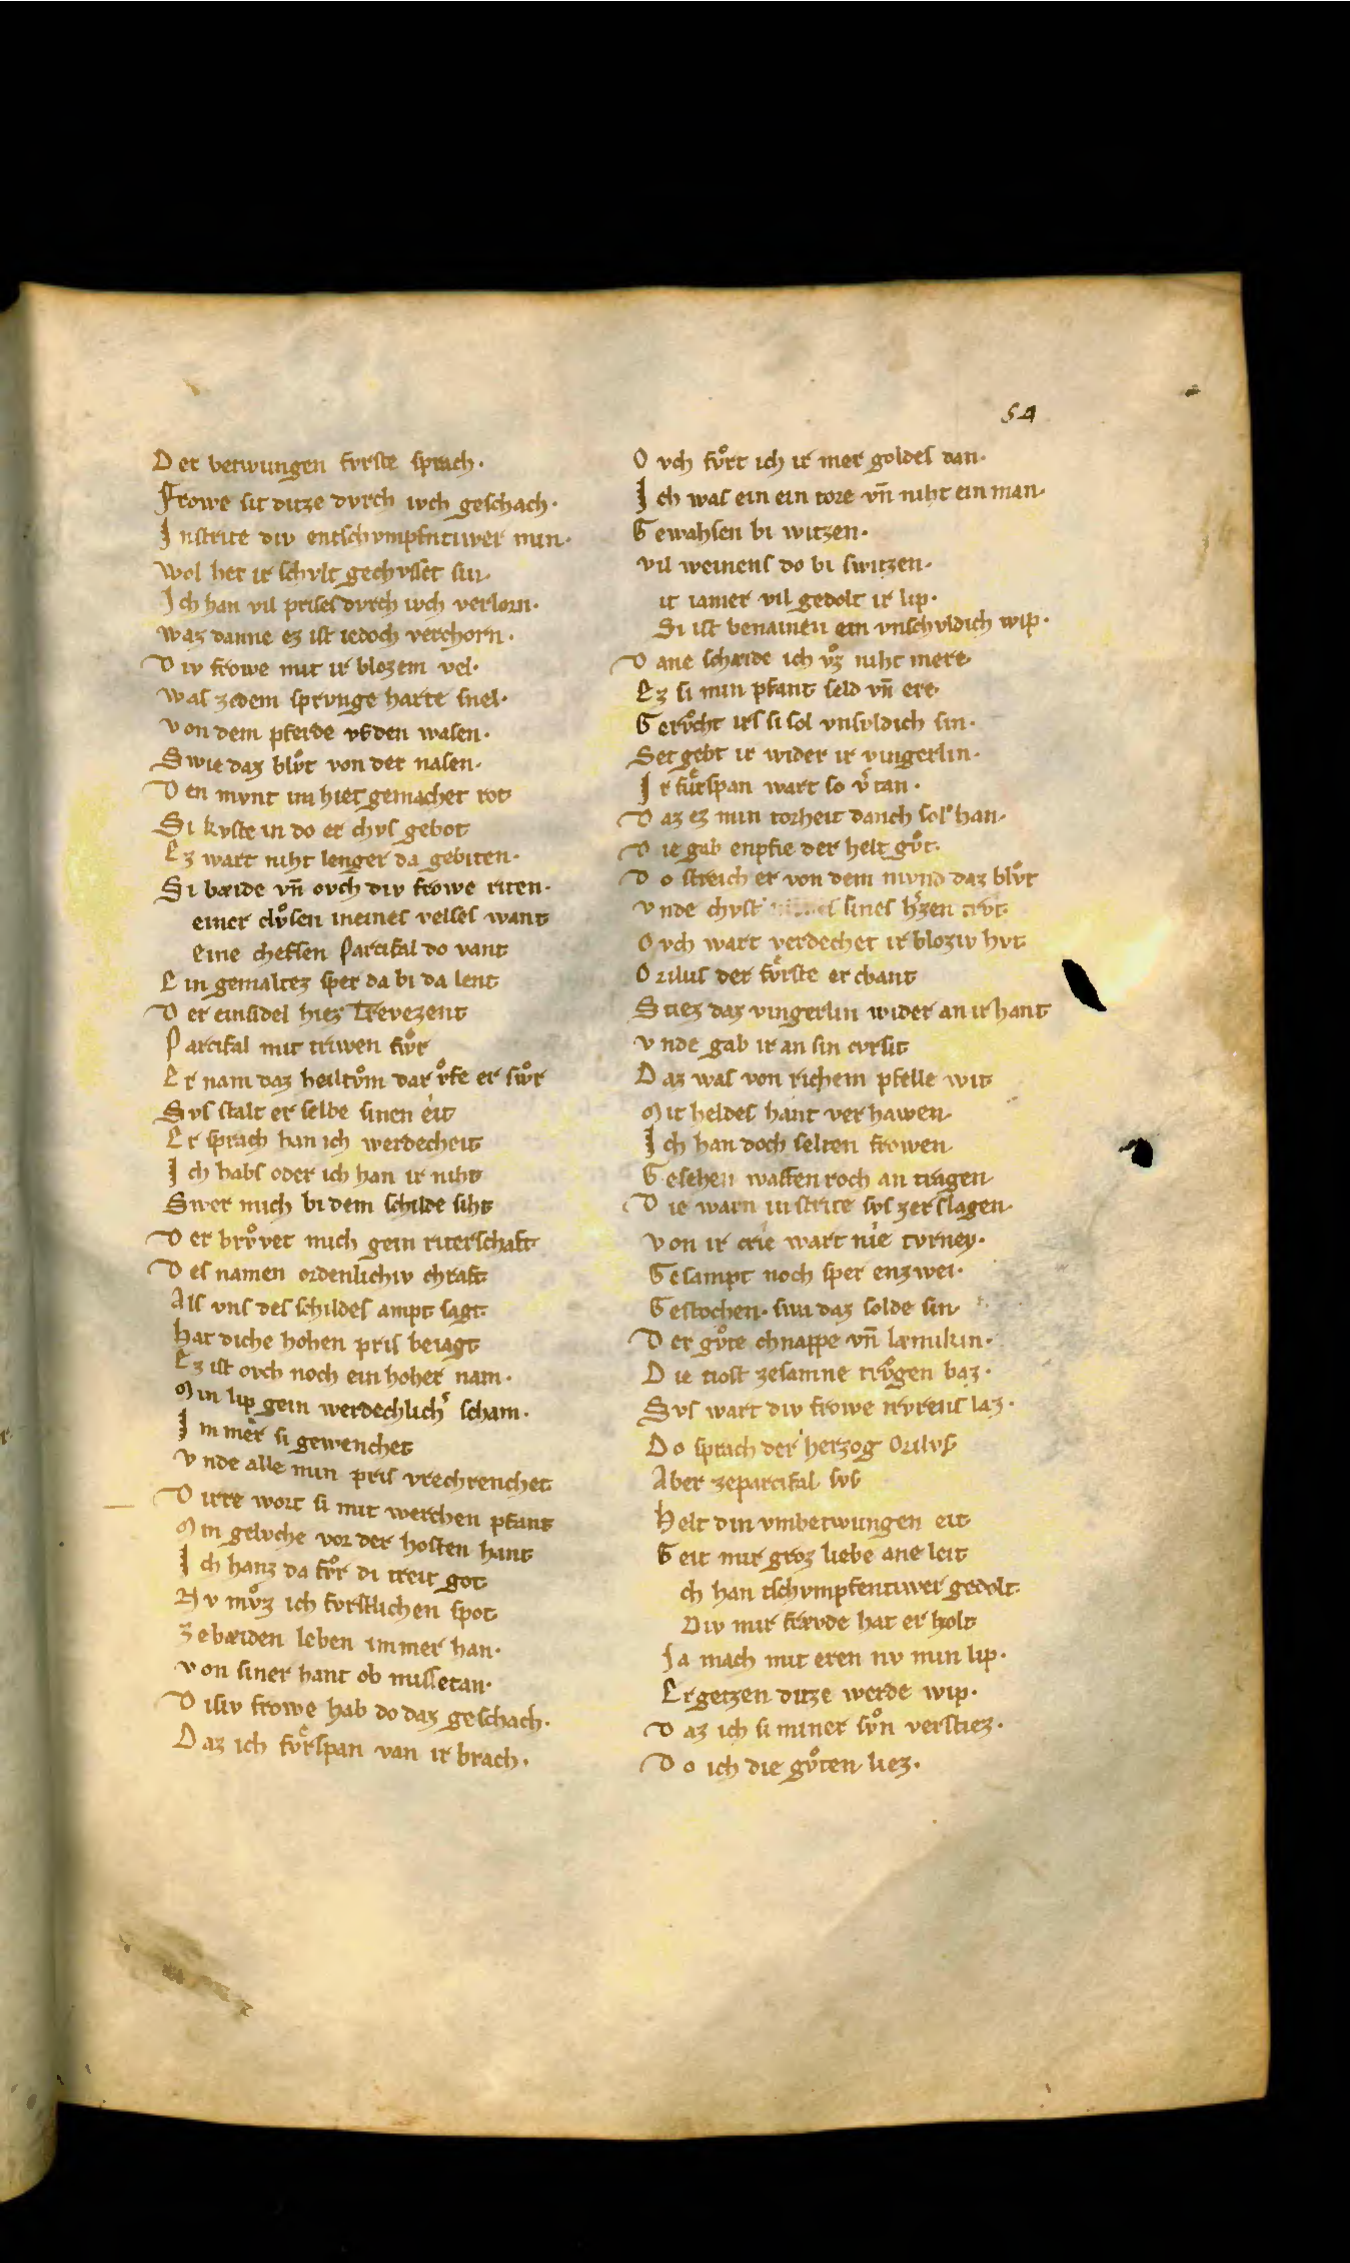 54
Der betwungen fvrste sprach·
Frowe sit ditze dvrch iwch geschach·
In strite div entschvmpfntiwer min·
Wol her ir schvlt gechvsset sin·
Ich han vil prises dvrch iwch verlorn·
Waz danne ez ist iedoch verchorn·
Div frowe mit ir blozem vel·
Was zedem sprvnge harte snel·
Von dem pferde vf den wasen·
Swie daz blvͦt von der nasen·
Den mvnt im het gemachet rot
Si kvste in do er chvs gebot
Ez wart niht lenger da gebiten·
Si bæide vn̄ ovch div frowe riten·
einer clvͦsen in eines velses want
eine chefsen Parcifal do vant
Ein gemaltez sper da bi da lent
Der einsidel hiez Trevezent
Parcifal mit triwen fvͦr
Er nam daz heiltvͦm dar vͦfe er swͦr
Svs stalt er selbe sinen eit
Er sprach han ich werdecheit
Ich habs oder ich han ir niht
Swer mich bi dem schilde siht
Der brvͦvet mich gein riterschaft
Des namen ordenlichiv chraft
Als vns des schildes ampt sagt
Hat diche hohen pris beiagt
Ez ist ovch noch ein hoher nam·
Min lip gein werdechlich͛ scham·
Immer si gewenchet
Vnde alle min pris vrechrenchet
Dirre wort si mit werchen pfant
Min gelvche vor der hosten hant
Ich hanz da fvͦr di treit got
Nv mvͦz ich fvrstlichen spot
Zebæiden leben immer han·
Von siner hant ob missetan·
Disiv frowe hab do daz geschach·
Daz ich fvͤrspan van ir brach·
Ovch fvͦrt ich ir mer goldes dan·
Ich was ein ein tore vn̄ niht ein man·
Gewahsen bi witzen·
Vil weinens do bi switzen·
it iamer vil gedolt ir lip·
Si ist benamen ein vnschvldich wip·
Dane schæide ich vͦz niht mere
Ez si min pfant seld vn̄ ere
Gervͦcht irs si sol vnsvldich sin·
Set gebt ir wider ir vingerlin·
Ir fvͤrspan wart so v͛tan·
Daz ez min torheit danch sol han·
Die gab enpfie der helt gvͦt·
Do streich er von dem mvnd daz blvͦt
Vnde chvst sines h͛zen trvt·
Ovch wart verdechet ir bloziv hvt
Orilus der fvͤrste erchant
Stiez daz vingerlin wider an ir hant
Vnde gab ir an sin cvrsit
Daz was von richem pfelle wit
Mit heldes hant verhawen·
Ich han doch selten frowen·
Gesehen waffenroch an tragen·
Die warn in strite svs zerslagen·
Von ir crie wart nie tvrney·
Gesampt noch sper enzwei·
Gestochen· swa daz solde sin·
Der gvͦte chnappe vn̄ læmikin·
Die tiost zesamne trvͦgen baz·
Svs wart div frowe trvrens laz·
Do sprach der herzog Orilvs
Aber zeparcifal svs
Helt din vmbetwungen eit
Geit mir groz liebe ane leit
ch han tschvmpfentiwer gedolt
Div mir frævde hat erholt
Ja mach mit eren nv min lip·
Ergetzen ditze werde wip·
Daz ich si miner svͦn verstiez·
Do ich die gvͦten liez·